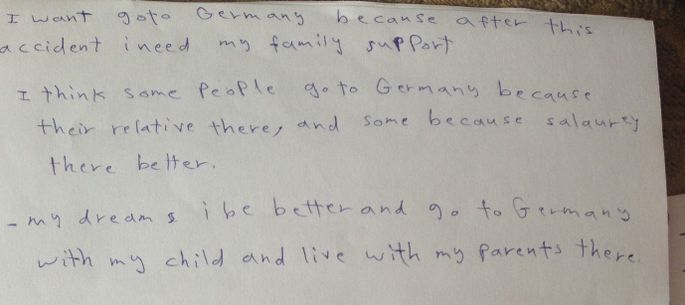 I want goto Germany because after this
accident ineed my family support
I think some people go to Germany because
their relative there, and some because salaurey
there better.
- my dreams i be better and go to Germany
with my child and live with my parents there.